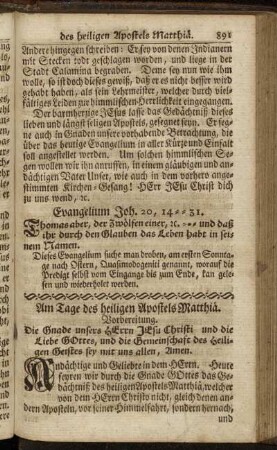 des heiligen Apostels Matthiä. 891
Andere hingegen schreiben: Er sey von denen Indianern
mit Stecken todt geschlagen worden, und liege in der
Stadt Calamina begraben. Deme sey nun wie ihm
wolle, so ist doch dieses gewiß, daß er es nicht besser wird
gehabt haben, als sein Lehrmeister, welcher durch viel-
fältiges Leiden zur himmlischen Herrlichkeit eingegangen.
Der barmhertzige JEsus lasse das Gedächtniß dieses
lieben und längst seligen Apostels, gesegnet seyn. Er seg-
ne auch in Gnaden unsere vorhabende Betrachtung, die
über das heutige Evangelium in aller Kürtze und Einfalt
soll angestellet werden. Um solchen himmlischen Se-
gen wollen wir ihn anruffen, in einem gläubigen und an-
dächtigen Vater Unser, wie auch in dem vorhero ange-
stimmten Kirchen-Gesang: HErr JEsu Christ dich
zu uns wend, ꝛc.
Evangelium Joh. 20, 14-- 31.
Thomas aber, der Zwölfen einer, ꝛc. --- und daß
ihr durch den Glauben das Leben habt in sei-
nem Namen.
Dieses Evangelium suche man droben, am ersten Sonnta-
ge nach Ostern, Quasimodogeniti genannt, worauf die
Predigt selbst vom Eingange bis zum Ende, kan gele-
sen und wiederholet werden.
Am Tage des heiligen Apostels Matthiä.
Vorbereitung.
Die Gnade unsers HErrn JEsu Christi und die
Liebe GOttes, und die Gemeinschaft des Heili-
gen Geistes sey mit uns allen, Amen.
Andächtige und Geliebte in dem HErrn. Heute
feyren wir durch die Gnade GOttes das Ge-
dächtniß des heiligen Apostels Matthiä, welcher
von dem HErrn Christo nicht, gleich denen an-
dern Aposteln, vor seiner Himmelfahrt, sondern hernach,
und